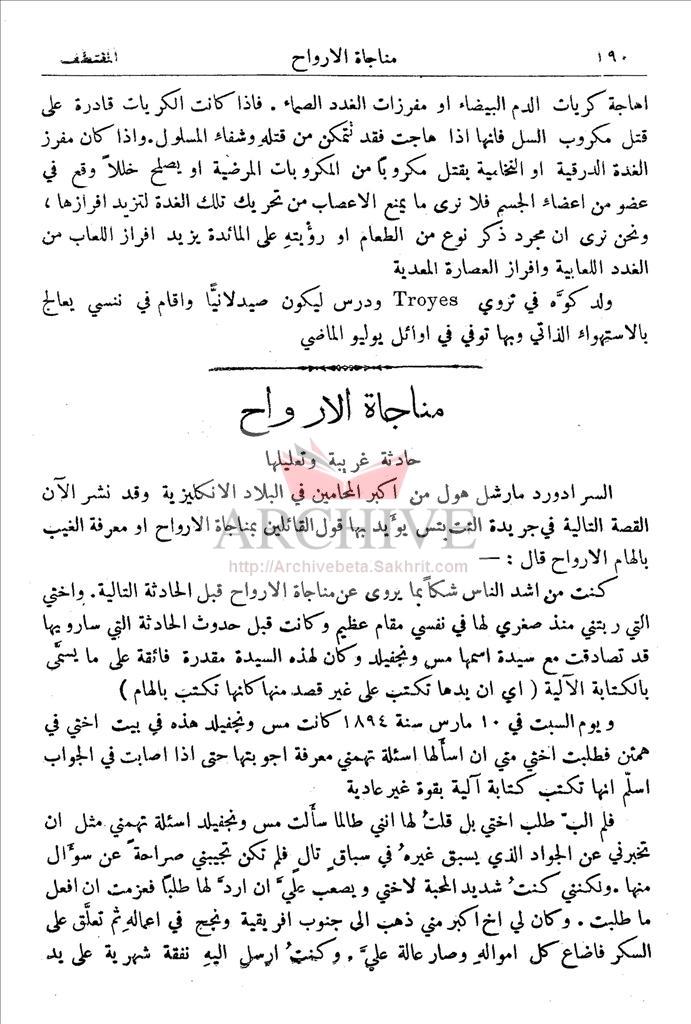 ١٩٠ مناجاة الارواح المقتطف
اهاجة كريات الدم البيضاء او مفرزات الغدد الصماء . فاذا كانت الكريات قادرة على
قتل مكروب السل فانها اذا هاجت فقد تتمكن من قتله وشفاء المسلول . واذا كان مفرز
الغدة الدرقية او النخامية يقتل مكروبًا من المكروبات المرضية او يصلح خللاً وقع في
عضو من اعضاء الجسم فلا نرى ما يمنع الاعصاب من تحريك تلك الغدة لتزيد افرازها ،
ونحن نرى ان مجرد ذكر نوع من الطعام او رؤيتهِ على المائدة يزيد افراز اللعاب من
الغدد اللعابية وافراز العصارة المعدية
ولد كوَّه في تروي Troyes ودرس ليكون صيدلانيًّا واقام في ننسي يعالج
بالاستهواء الذاتي وبها توفي في اوائل يوليو الماضي
مناجاة الارواح
حادثة غريبة وتعليلها
السر ادورد مارشل هول من اكبر المحامين في البلاد الانكليزية وقد نشر الآن
القصة التالية في جريدة التت بتس يؤَيد بها قول القائلين بمناجاة الارواح او معرفة الغيب
بالهام الارواح قال : —
ARCHIVE
http://Archivebeta.Sakhrit.com
كنت من اشد الناس شكًّا بما يروى عن مناجاة الارواح قبل الحادثة التالية . واختي
التي ربتني منذ صغري لها في نفسي مقام عظيم وكانت قبل حدوث الحادثة التي سارويها
قد تصادقت مع سيدة اسمها مس ونجفيلد وكان لهذه السيدة مقدرة فائقة على ما يسمَّى
بالكتابة الآلية ( اي ان يدها تكتب على غير قصد منها كانها تكتب بالهام )
و يوم السبت في ١٠ مارس سنة ١٨٩٤ كانت مس ونجفيلد هذه في بيت اختي في
همئن فطلبت اختي مني ان اسأَلها اسئلة تهمني معرفة اجوبتها حتى اذا اصابت في الجواب
اسلّم انها تكتب كتابة آلية بقوة غير عادية
فلم البّ طلب اختي بل قلتُ لها انني طالما سأَلت مس ونجفيلد اسئلة تهمني مثل ان
تخبرني عن الجواد الذي يسبق غيرهُ في سباق تالٍ فلم تكن تجيبني صراحةً عن سؤَال
منها . ولكنني كنتُ شديد المحبة لاختي و يصعب عليَّ ان اردَّ لها طلبًا فعزمت ان افعل
ما طلبت . وكان لي اخ اكبر مني ذهب الى جنوب افريقية ونجح في اعمالهِ ثم تعلَّق على
السكر فاضاع كل اموالهِ وصار عالة عليَّ . وكنتُ ارسل اليهِ نفقة شهرية على يد